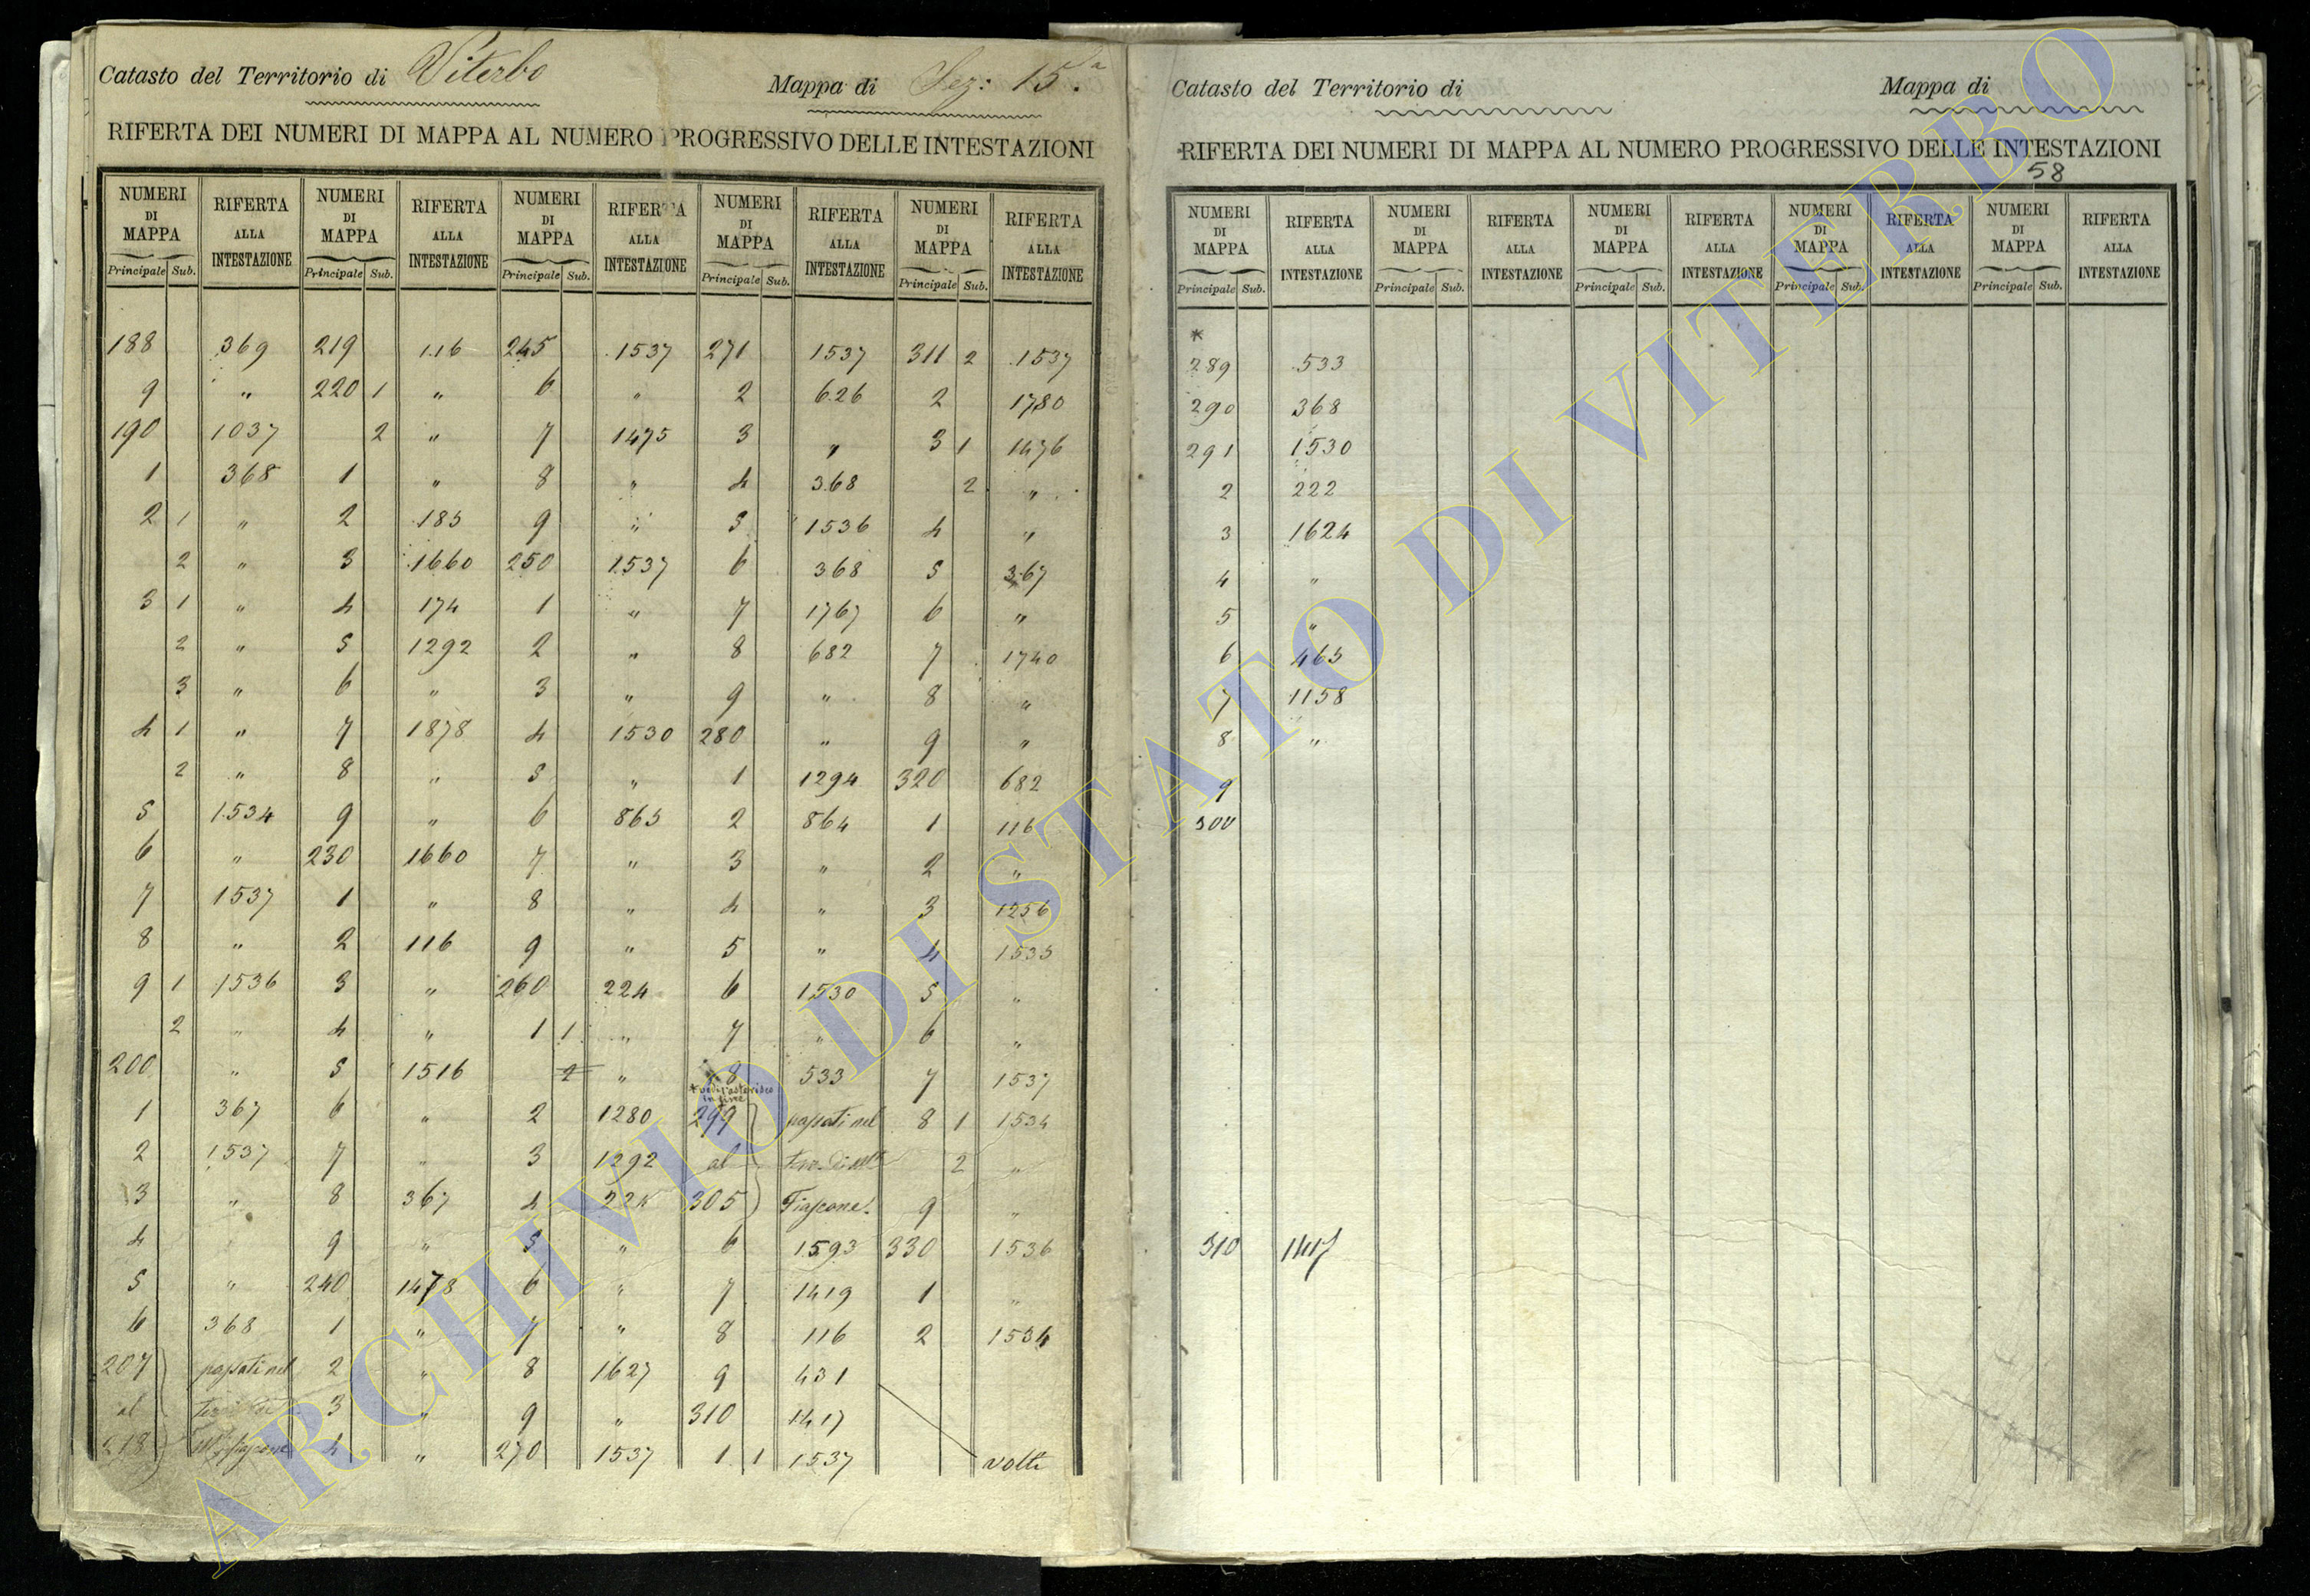 Catasto del Territorio di Viterbo Mappa di Sez: 15.a
RIFERTA DEI NUMERI DI MAPPA AL NUMERO PROGRESSIVO DELLE INTESTAZIONI
NUMERI DI MAPPA RIFERTA ALLA INTESTAZIONE NUMERI DI MAPPA RIFERTA ALLA INTESTAZIONE NUMERI DI MAPPA RIFERTA ALLA INTESTAZIONE NUMERI DI MAPPA RIFERTA ALLA INTESTAZIONE NUMERI DI MAPPA RIFERTA ALLA INTESTAZIONE
Principale Sub. Principale Sub. Principale Sub. Principale Sub. Principale Sub.
188 369 219 116 245 1537 271 1537 311 2 1537
9 " 220 1 " 6 " 2 626 2 1780
190 1037 2 " 7 1475 3 " 3 1 1476
1 368 1 " 8 " 4 368 2 "
2 1 " 2 185 9 " 5 1536 4 "
2 " 3 1660 250 1537 6 368 5 367
3 1 " 4 174 1 " 7 1767 6 "
2 " 5 1292 2 " 8 682 7 1740
3 " 6 " 3 " 9 " 8 "
4 1 " 7 1878 4 1530 280 " 9 "
2 " 8 " 5 " 1 1294 320 682
5 1534 9 " 6 865 2 864 1 116
6 " 230 1660 7 " 3 " 2 "
7 1537 1 " 8 " 4 " 3 1256
8 " 2 116 9 " 5 " 4 1535
9 1 1536 3 " 260 224 6 1530 5 "
2 " 4 " 1 1 " 7 " 6 "
200 " 5 1516 2 " 8 533 7 1537
* vedi asterisco in fine
1 367 6 " 2 1280 299 passati nel 8 1 1534
2 1537 7 " 3 1292 al terr. di 2 "
3 " 8 367 4 224 305 Fiascone. 9 "
4 9 " 5 " 6 1593 330 1536
5 " 240 1478 6 " 7 1419 1 "
6 368 1 " 7 " 8 116 2 1534
207 passati nel 2 " 8 1627 9 431
al 3 " 9 " 310 1417
218 4 " 270 1537 1 1 1537 volti
Catasto del Territorio di Mappa di
RIFERTA DEI NUMERI DI MAPPA AL NUMERO PROGRESSIVO DELLE INTESTAZIONI
58
NUMERI DI MAPPA RIFERTA ALLA INTESTAZIONE NUMERI DI MAPPA RIFERTA ALLA INTESTAZIONE NUMERI DI MAPPA RIFERTA ALLA INTESTAZIONE NUMERI DI MAPPA RIFERTA ALLA INTESTAZIONE NUMERI DI MAPPA RIFERTA ALLA INTESTAZIONE
Principale Sub. Principale Sub. Principale Sub. Principale Sub. Principale Sub.
*
289 533
290 368
291 1530
2 222
3 1624
4 "
5 "
6 465
7 1158
8 "
9
300
310 1417
ARCHIVIO DI STATO DI VITERBO